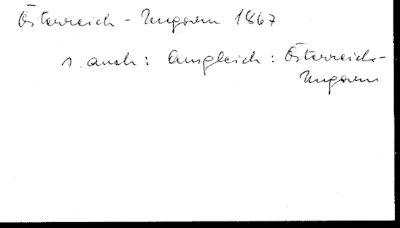 Österreich - Ungarn 1867
s. auch: Ausgleich: Österreich-
Ungarn